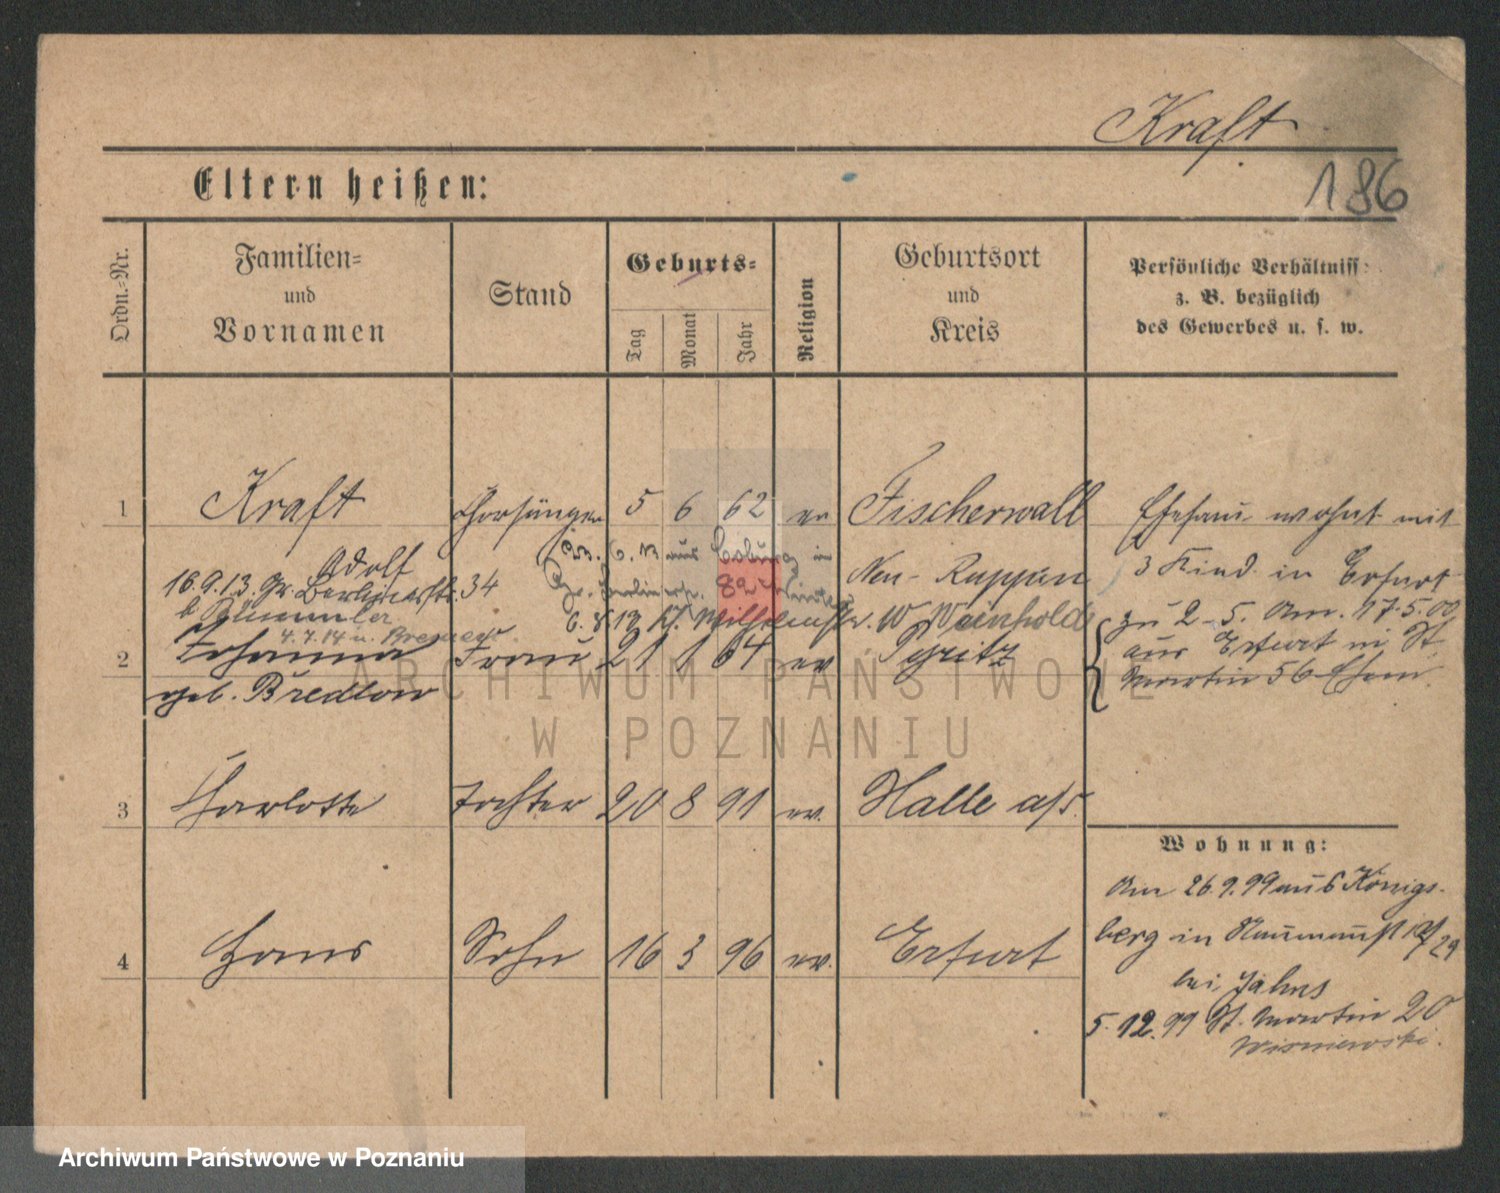 Kraft
186
Eltern heißen:
Ordn.-Nr.
Familien-
und
Vornamen
Stand
Geburts-
Tag
Monat
Jahr
Religion
Geburtsort
und
Kreis
Persönliche Verhältniss
z. B. bezüglich
des Gewerbes u. s. w.
1 Kraft Chorsänger 5 6 62 ev Fischerwall
Adolf
Neu-Ruppin
16.9.13. Gr. Berlinerstr. 34
b Bümmler
23. 6. 13 aus Coburg in
Gr. Berlinerstr. 82
4.7.14 n.
2 Johanna Frau 21 1 64 ev Pyritz
geb. Bredlow
3 Charlotte Tochter 20 8 91 ev. Halle a/S.
4 Hans Sohn 16 3 96 ev. Erfurt
Ehefrau wohnt mit
3 Kind. in Erfurt
zu 2-5. Am. 17.5.00
aus Erfurt in St.
Martin 56
Wohnung:
Am 26.9.99 aus Königs-
berg in 29
bei Jahns
5.12.99 St. Martin 20
Wisniewski.
ARCHIWUM PAŃSTWOWE
W POZNANIU
Archiwum Państwowe w Poznaniu